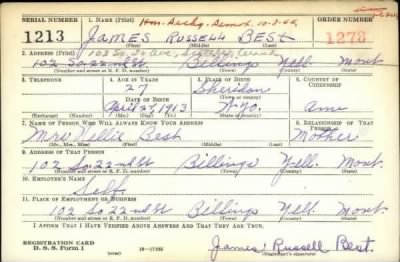 SERIAL NUMBER 1. NAME (Print) ORDER NUMBER
1213 JAMES RUSSELL BEST 1278
2. ADDRESS (Print)
102 So. 22nd St Billings Yell. Mont
(Number and street or R. F. D. number) (Town) (County) (State)
3. TELEPHONE 4. AGE IN YEARS 5. PLACE OF BIRTH 6. COUNTRY OF CITIZENSHIP
27 Sheridan
DATE OF BIRTH
April 27, 1913 Wyo. Ame
(Exchange) (Number) (Mo.) (Day) (Yr.) (State or country)
7. NAME OF PERSON WHO WILL ALWAYS KNOW YOUR ADDRESS 8. RELATIONSHIP OF THAT PERSON
Mrs Nellie Best Mother
(Mr., Mrs., Miss) (First) (Middle) (Last)
9. ADDRESS OF THAT PERSON
102 So. 22nd St Billings Yell. Mont.
(Number and street or R. F. D. number) (Town) (County) (State)
10. EMPLOYER'S NAME
Self
11. PLACE OF EMPLOYMENT OR BUSINESS
102 So 22nd St Billings Yell. Mont
(Number and street or R. F. D. number) (Town) (County) (State)
I AFFIRM THAT I HAVE VERIFIED ABOVE ANSWERS AND THAT THEY ARE TRUE.
REGISTRATION CARD
D. S. S. Form 1 (over) 16-17105 James Russell Best.
(Registrant's signature)